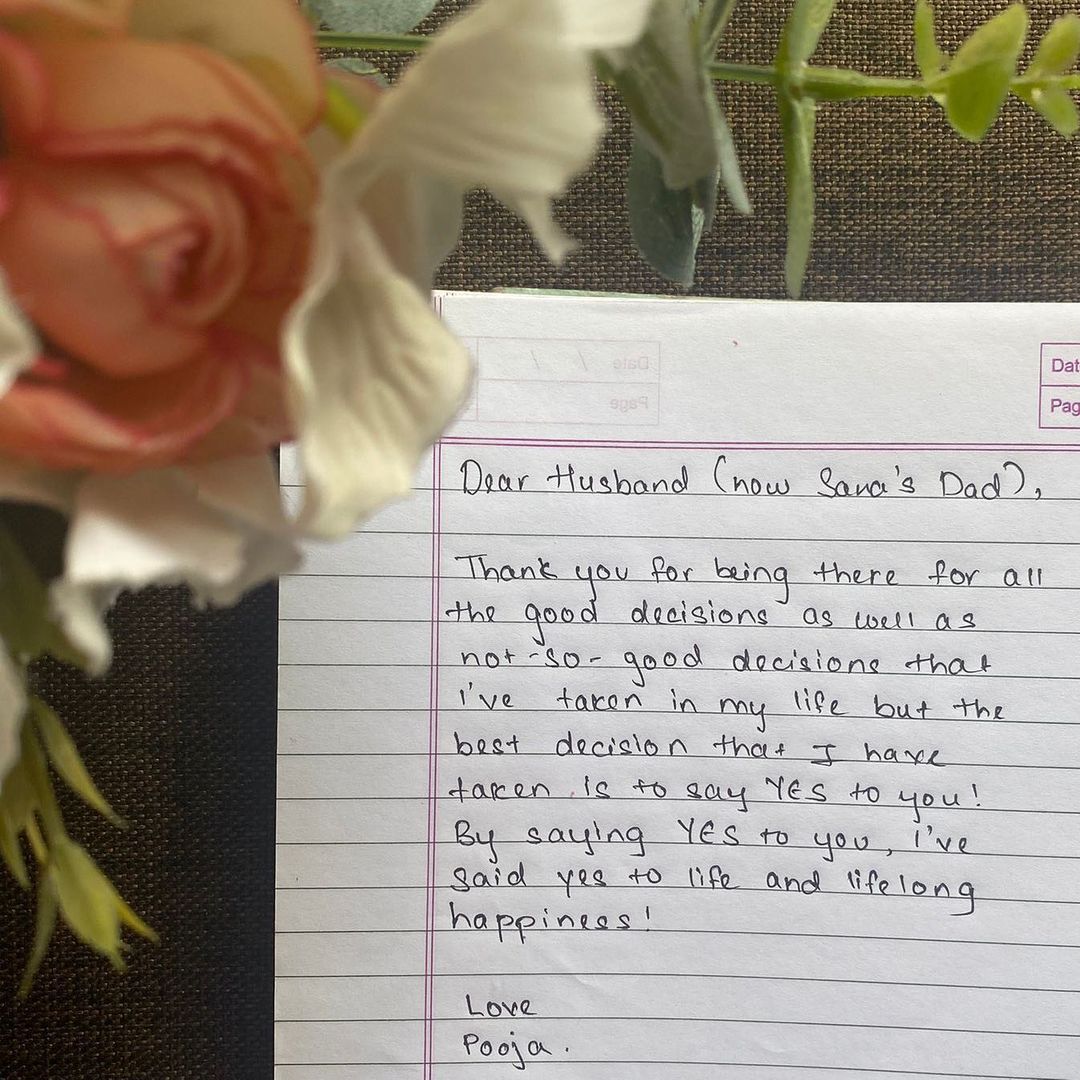 Date / /
Page
Dat
Pag
Dear Husband (now Sava's Dad),
Thank you for being there for all
the good decisions as well as
not-so-good decisions that
i've taken in my life but the
best decision that I have
taken is to say YES to you!
By saying YES to you, i've
said yes to life and lifelong
happiness!
Love
Pooja.